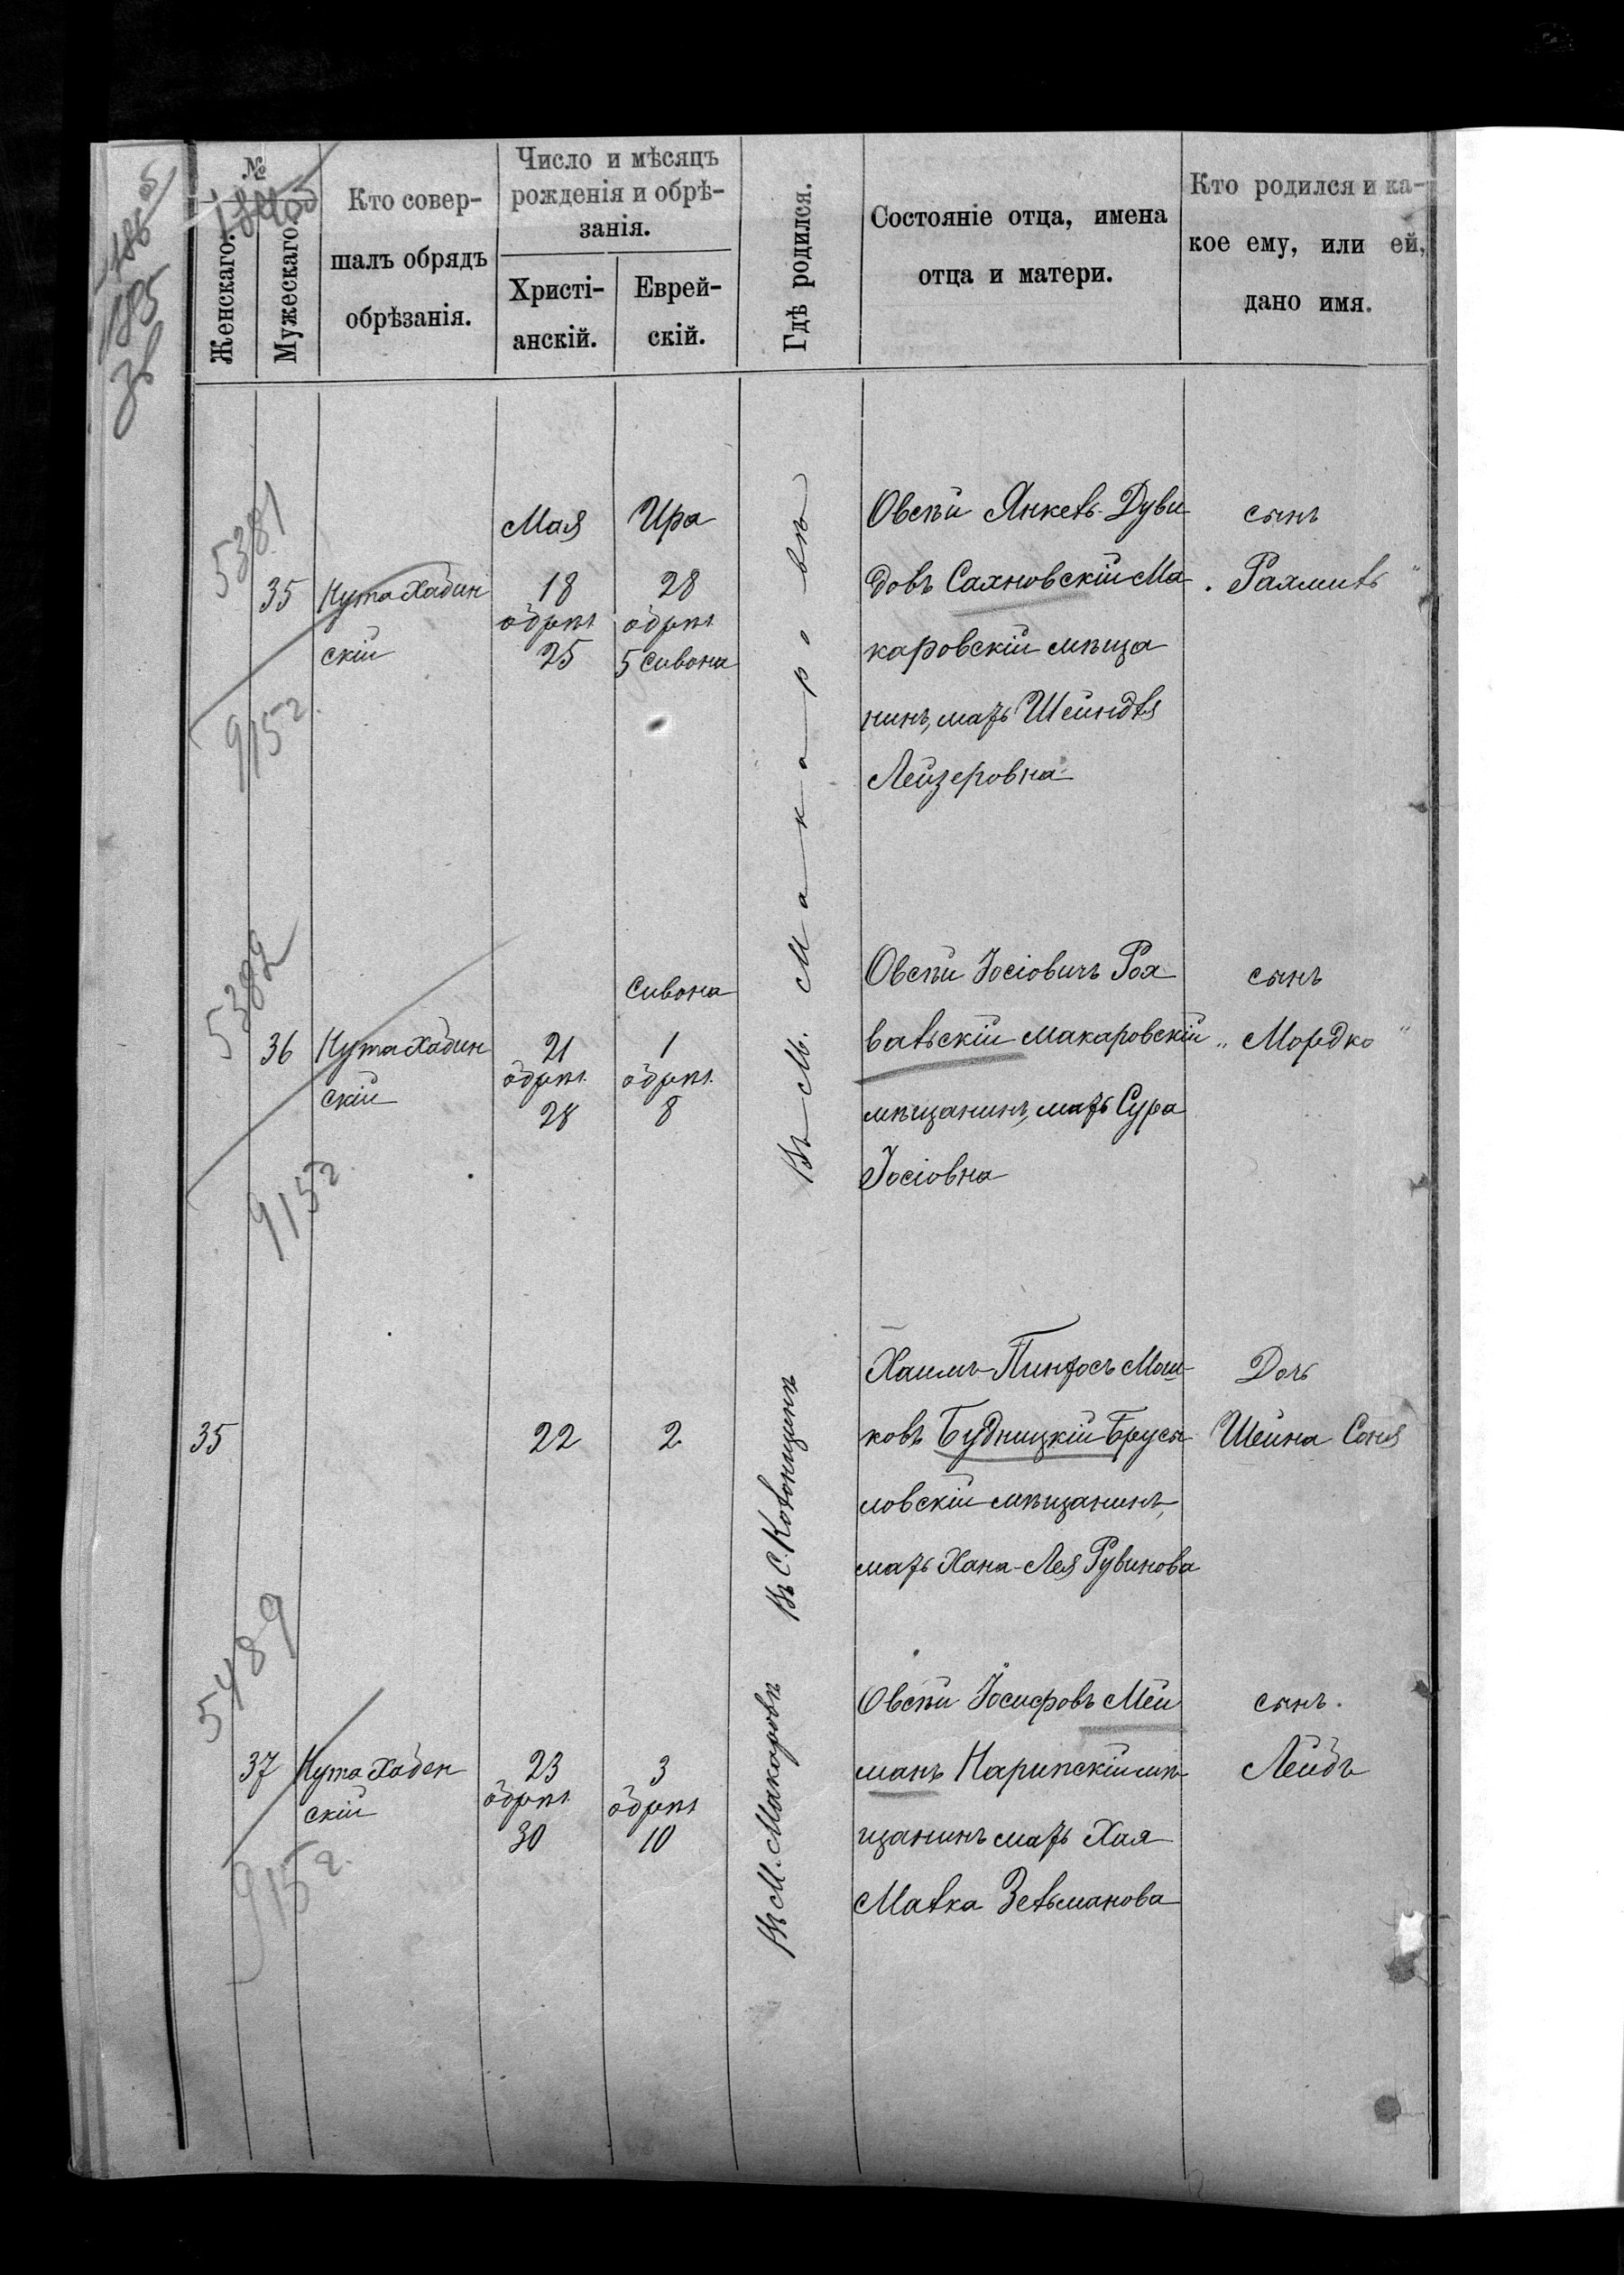 №
Женскаго.
Мужескаго.
Кто совер-
шалъ обрядъ
обрѣзанія.
Число и мѣсяцъ
рожденія и обрѣ-
занія.
Христі-
анскій.
Еврей-
скій.
Гдѣ родился.
Состояніе отца, имена
отца и матери.
Кто родился и ка-
кое ему, или ей,
дано имя.
5381
35
Нута Хабин
скій
9152
Мая
18
обрѣз.
25
Ира
28
обрѣз.
5 Сивона
Въ М. Макаровѣ
Овсѣй Янкель Дуви
довъ Сахновскій Ма-
каровскій мѣща
нинъ, мать Шейндля
Лейзеровна
сынъ
"Рахмиль"
5382
36
Нута Хабин
скій
9152
21
обрѣз.
28
Сивона
1
обрѣз.
8
Овсѣй Іосіовичъ Рох
вальскій Макаровскій
мѣщанинъ, мать Сура
Іосіовна
сынъ
"Мордко"
35
22
2
Въ С.
Хаимъ-Пинхосъ Мош-
ковъ Будницкій Бруси
ловскій мѣщанинъ,
мать Хана-Лея Рувинова
Дочь
Шейна Соня
5489
37
Нута Хабен
скій
9152
23
обрѣз.
30
3
обрѣз.
10
Въ М. Макаровѣ
Овсѣй Іосифовъ Мей
манъ мѣ-
щанинъ мать Хая
Малка Зельманова
сынъ.
Лейбъ